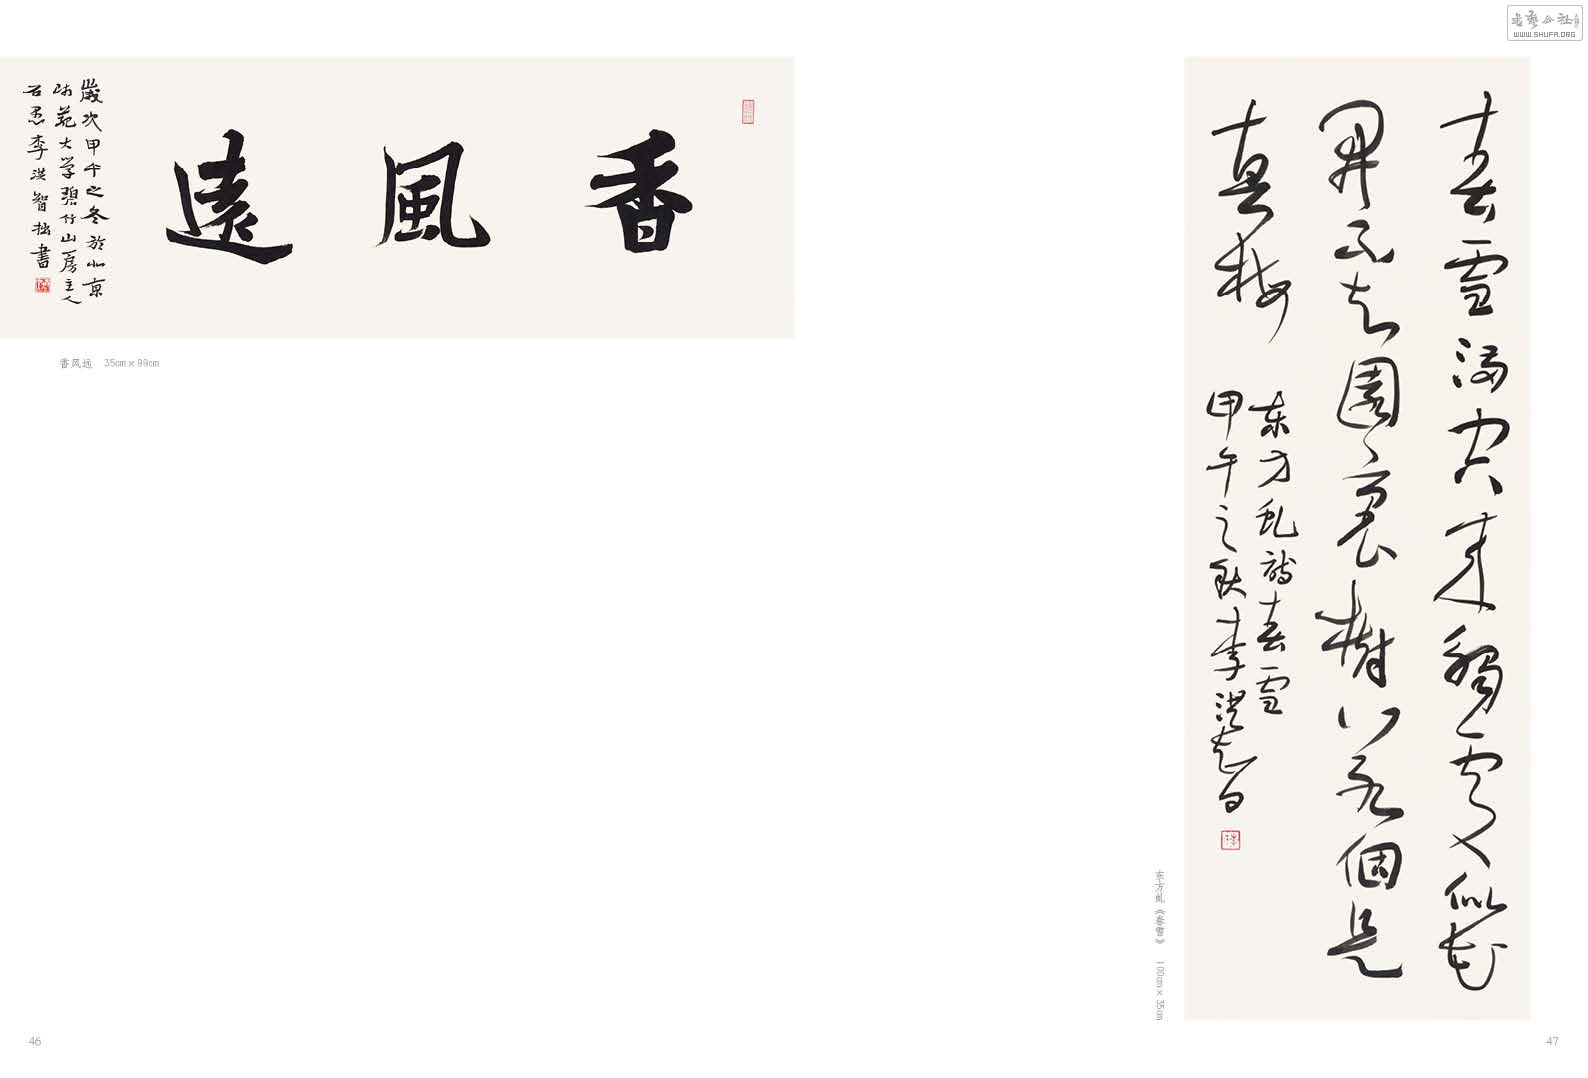 香風遠
歲次甲午之冬於北京
师范大学碧竹山房主人
石愚李洪智拙書
香风远 35cm×99cm
46
書藝公社
WWW.SHUFA.ORG
春雪滿空来觸處似花
開不知園裏樹若個是
真梅
东方虬詩春雪
甲午之秋李洪智書
东方虬《春雪》 100cm×35cm
47